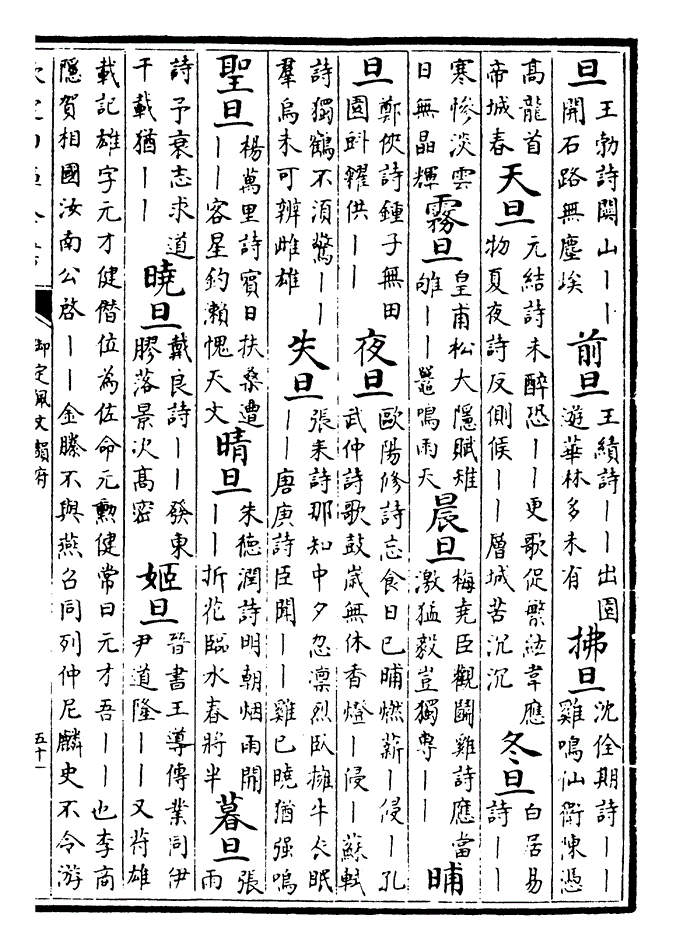 旦 王勃詩闗山丨丨開石路無塵埃 前旦 王績詩丨丨出園遊華林多未有 拂旦 沈佺期詩丨丨雞鳴仙衢陳憑
髙龍首帝城春 天旦 元結詩未醉恐丨丨更歌促繁絃韋應物夏夜詩反側候丨丨層城苦沉沉 冬旦 白居易詩丨丨
寒慘淡雲日無晶輝 霧旦 皇甫松大隱賦雉雊丨丨鼉鳴雨天 晨旦 梅堯臣觀鬭雞詩應當激猛毅豈獨専丨丨 晡
旦 鄭俠詩鍾子無田園㪷糴供丨丨 夜旦 歐陽修詩忘食日已晡燃薪丨侵丨孔武仲詩歌鼓嵗無休香燈丨侵丨蘇軾
詩獨鶴不湏驚丨丨羣烏未可辨雌雄 失旦 張耒詩那知中夕忽凛烈臥擁牛衣眠丨丨唐庚詩臣聞丨丨雞已曉猶强鳴
聖旦 楊萬里詩賓日扶桑遭丨丨客星釣瀨愧天文 晴旦 朱徳潤詩明朝烟雨開丨丨折花臨水春將半 暮旦 張雨
詩予衰志求道千載猶丨丨 曉旦 戴良詩丨丨發東膠落景次髙密 姬旦 晉書王導傳業同伊尹道隆丨丨又苻雄
載記雄字元才健僭位為佐命元勲健常曰元才吾丨丨也李商隱賀相國汝南公啓丨丨金縢不與燕召同列仲尼麟史不令游
欽定四庫全書 御定佩文韻府 五十一